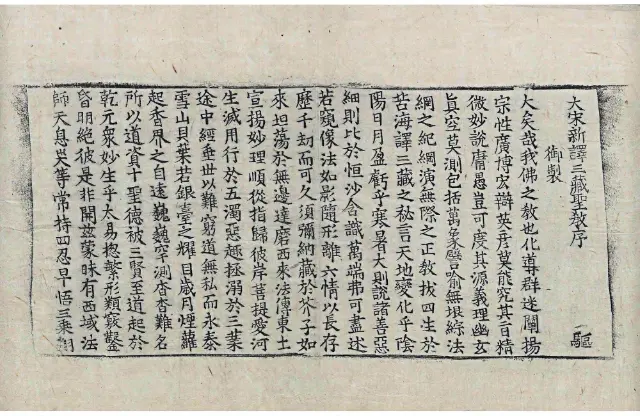 大宋新譯三藏聖教序
御製
驅
大矣哉我佛之教也化導群迷闡揚
宗性廣博宏辯英彥莫能究其旨精
微妙說庸愚豈可度其源義理幽玄
真空莫測包括萬象譬喻無垠綜法
網之紀綱演無際之正教拔四生於
苦海譯三藏之秘言天地變化乎陰
陽日月盈虧乎寒暑大則說諸善惡
細則比於恒沙含識萬端弗可盡述
若窺像法如影隨形離六情以長存
歷千劫而可久須彌納藏於芥子如
來坦蕩於無邊達磨西來法傳東土
宣揚妙理順從指歸彼岸菩提愛河
生滅用行於五濁惡趣拯溺於三業
途中經垂世以難窮道無私而永泰
雪山貝葉若銀臺之耀目歲月煙蘿
起香界之自遠巍巍罕測杳杳難名
所以道資十聖德被三賢至道起於
乾元眾妙生乎太易揔繁形類竅鑿
昏明絕彼是非開茲蒙昧有西域法
師天息災等常持四忍早悟三乘翻